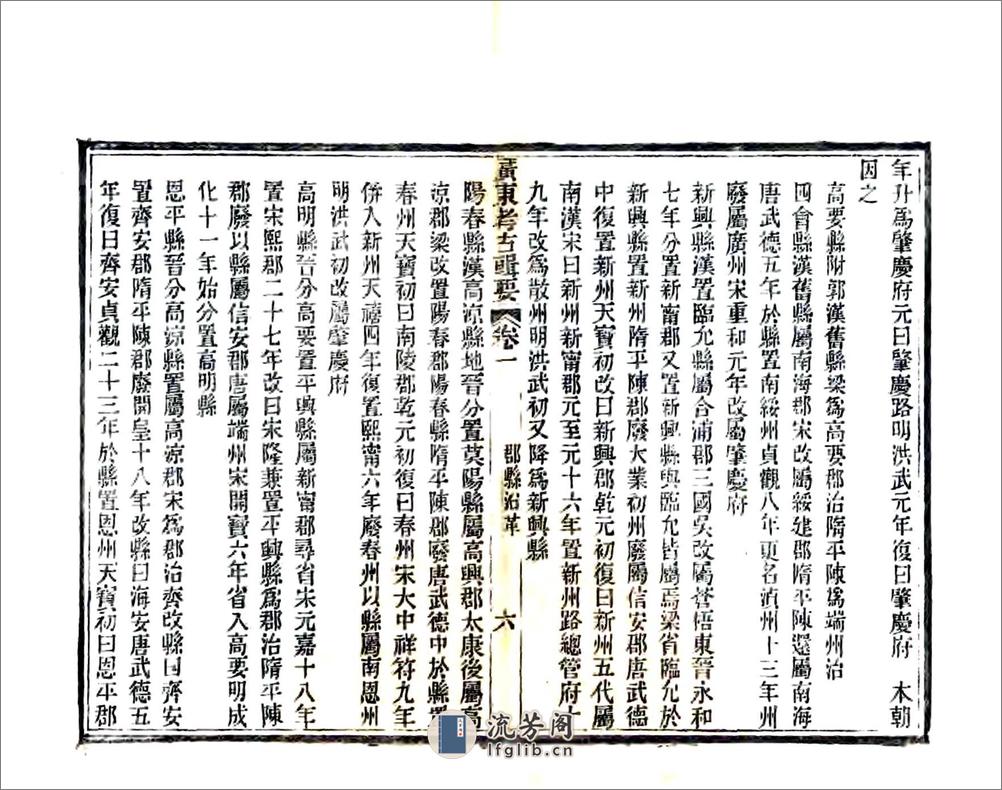 年升爲肇慶府元曰肇慶路明洪武元年復曰肇慶府　本朝
因之
高要縣附郭漢舊縣梁爲高要郡治隋平陳爲端州治
四會縣漢舊縣屬南海郡宋改屬綏建郡隋平陳還屬南海
唐武德五年於縣置南綏州貞觀八年更名湞州十三年州
廢屬廣州宋重和元年改屬肇慶府
新興縣漢置臨允縣屬合浦郡三國吳改屬蒼梧東晉永和
七年分置新甯郡又置新興縣與臨允皆屬焉梁省臨允於
新興縣置新州隋平陳郡廢大業初州廢屬信安郡唐武德
中復置新州天寶初改曰新興郡乾元初復曰新州五代屬
南漢宋曰新州新甯郡元至元十六年置新州路總管府十
九年改爲散州明洪武初又降爲新興縣
廣東考古輯要　卷一　郡縣沿革　六
陽春縣漢高涼縣地晉分置莫陽縣屬高興郡太康後屬高
涼郡梁改置陽春郡陽春縣隋平陳郡廢唐武德中於縣置
春州天寶初曰南陵郡乾元初復曰春州宋大中祥符九年
併入新州天禧四年復置熙甯六年廢春州以縣屬南恩州
明洪武初改屬肇慶府
高明縣晉分高要置平興縣屬新甯郡尋省宋元嘉十八年
置宋熙郡二十七年改曰宋隆兼置平興縣爲郡治隋平陳
郡廢以縣屬信安郡唐屬端州宋開寶六年省入高要明成
化十一年始分置高明縣
恩平縣晉分高涼縣置屬高涼郡宋爲郡治齊改縣曰齊安
置齊安郡隋平陳郡廢開皇十八年改縣曰海安唐武德五
年復曰齊安貞觀二十三年於縣置恩州天寶初曰恩平郡
流芳阁
lfglib.cn